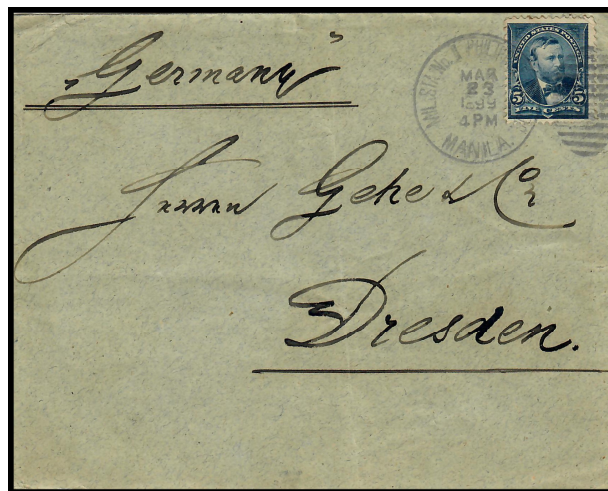 „Germany“
MIL. STA. NO. 1 PHILIP
MAR
23
1899
4 PM
MANILA.
UNITED STATES POSTAGE
5 5
FIVE CENTS
Herren Gehe & Co
Dresden.